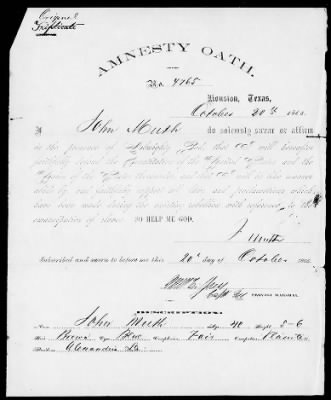 Original
Triplicate
AMNESTY OATH.
No. 4765
Houston, Texas,
October 20th 1865.
I John Muth do solemnly swear or affirm
in the presence of Almighty God, that I will henceforth
faithfully defend the Constitution of the United States and the
Union of the States thereunder, and that I will in like manner
abide by and faithfully support all laws and proclamations which
have been made during the existing rebellion with reference to the
emancipation of slaves. SO HELP ME GOD.
J Muth
Subscribed and sworn to before me this 20th day of October 1865.
PROVOST MARSHAL.
DESCRIPTION:
Name John Muth Age 40 Height 5-6
Hair Brown Eyes Blue Complexion Fair Occupation
Residence Alexandria La.